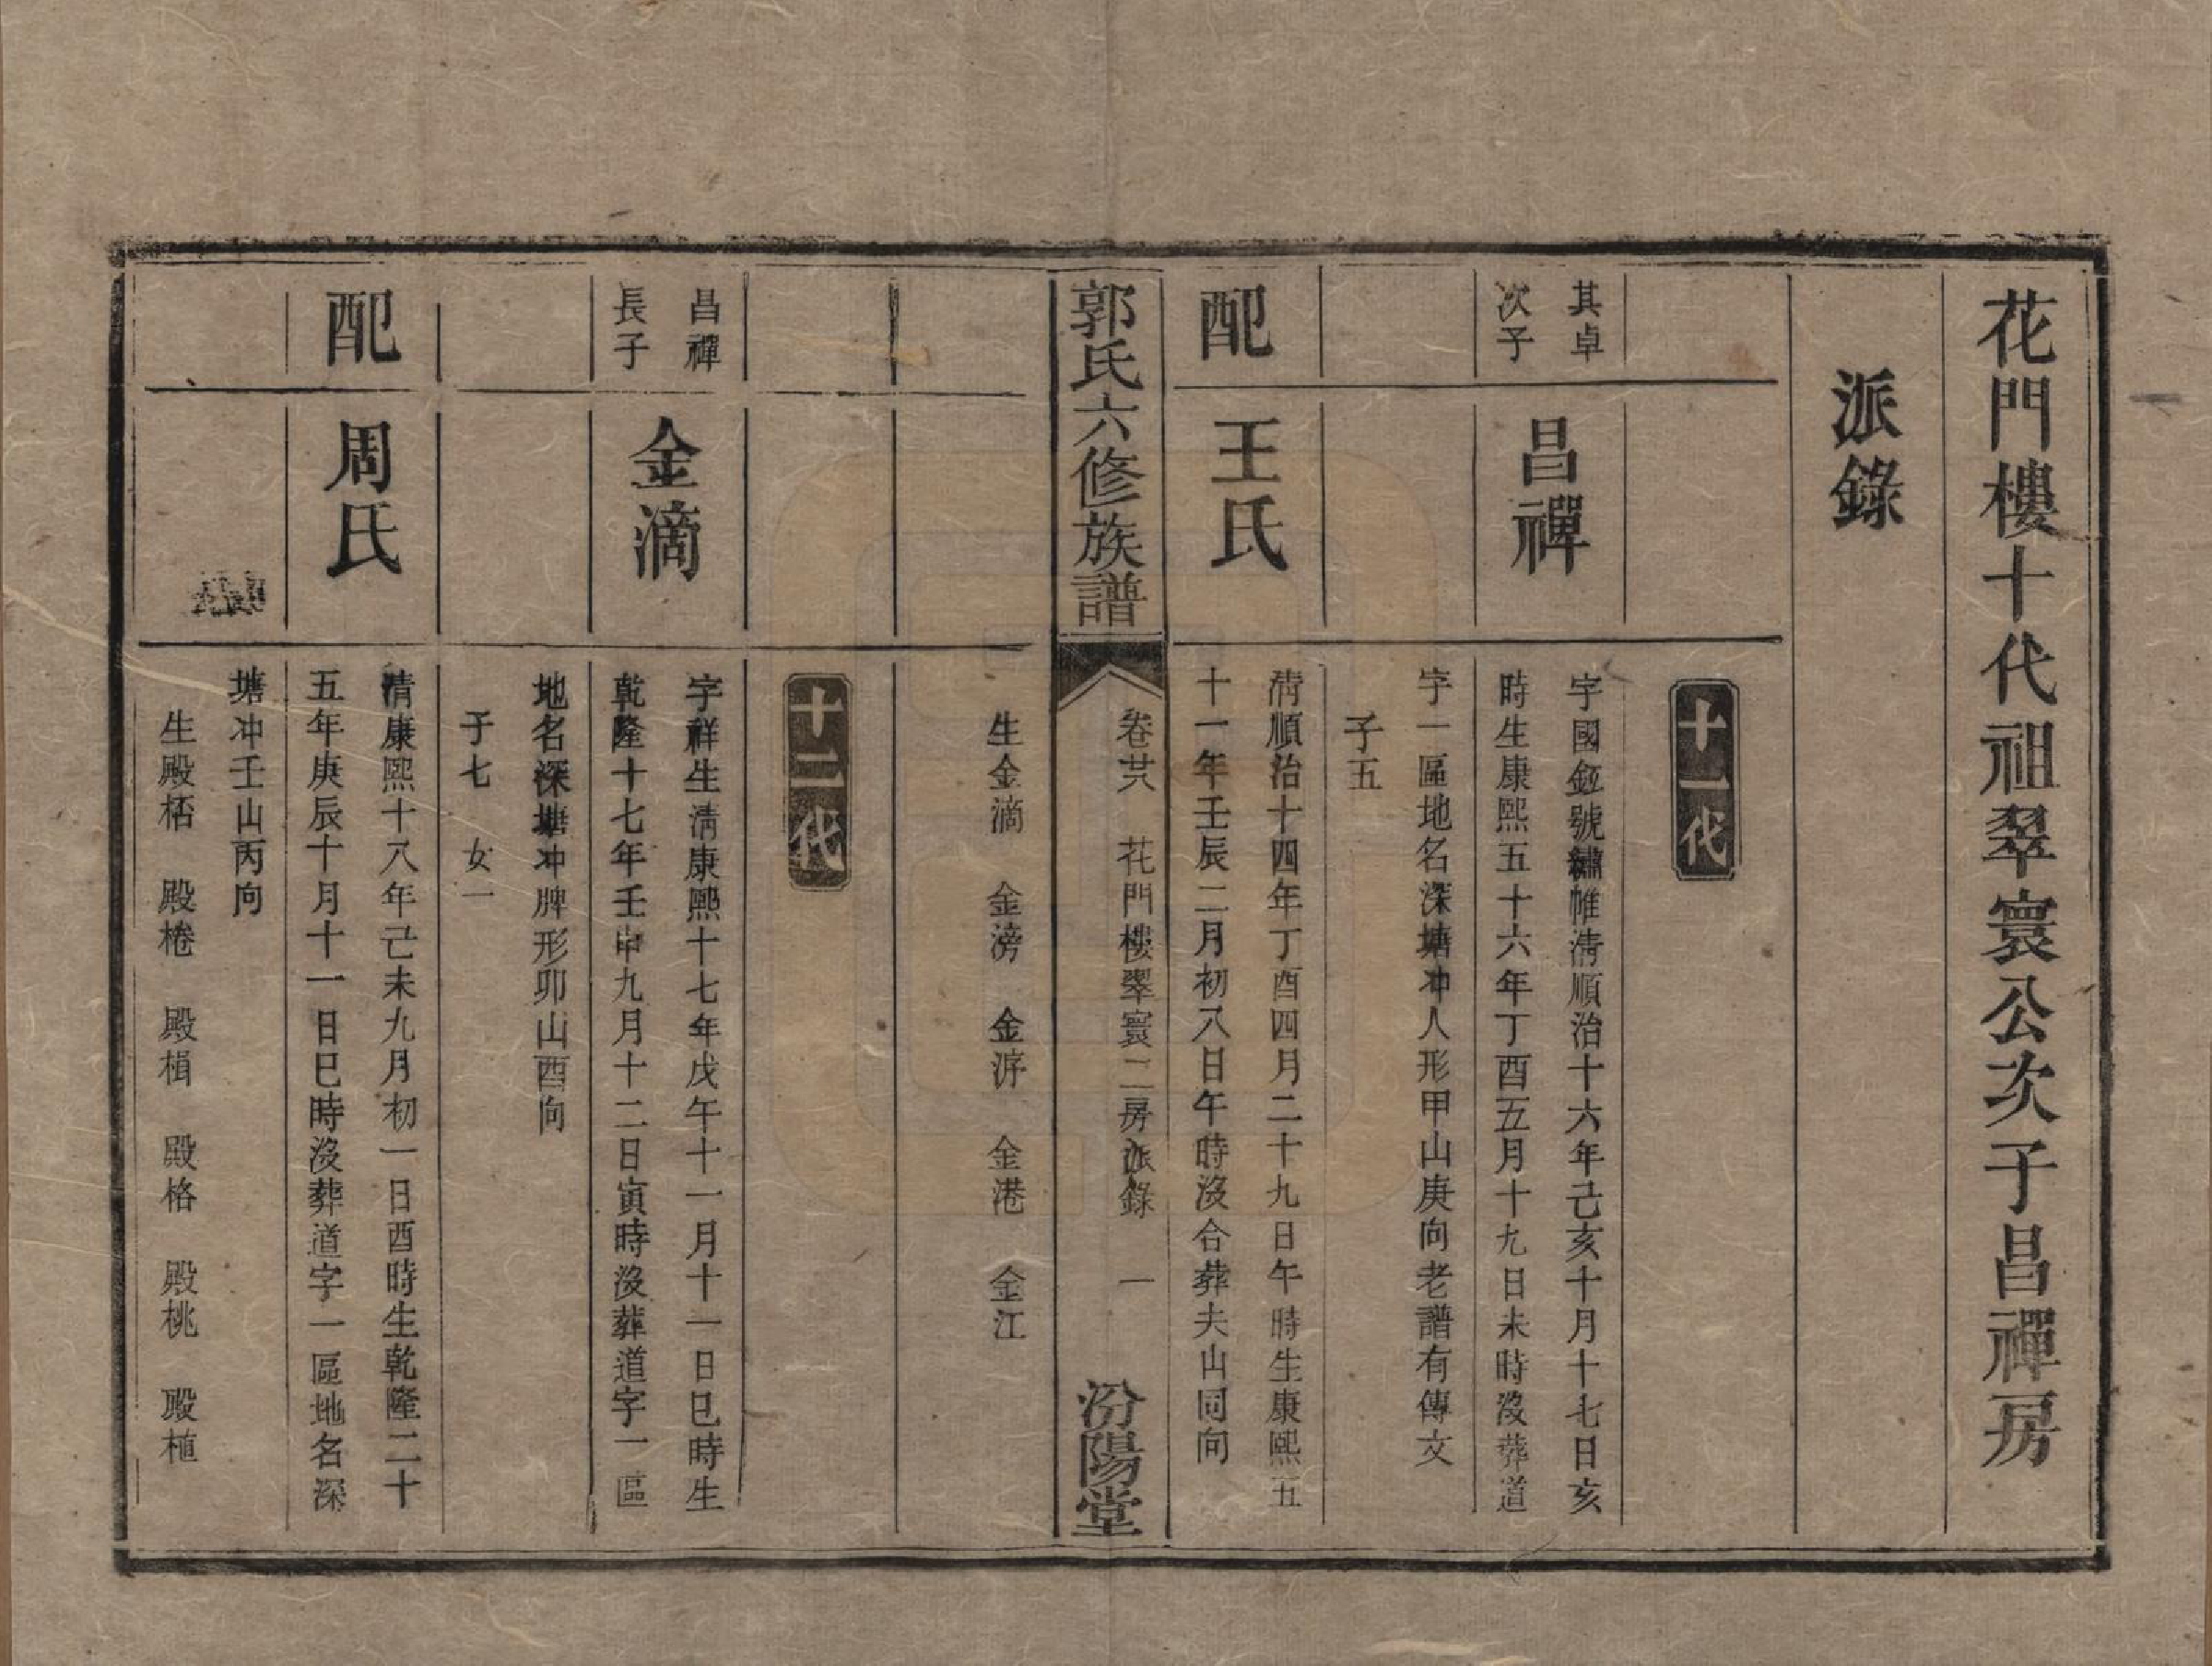 花門樓十代祖翠寰公次子昌禪房
派錄
十一代
其卓
次子
昌禪
字國鉦號繡帷清順治十六年己亥十月十七日亥
時生康熙五十六年丁酉五月十九日未時沒葬道
字一區地名深塘冲人形甲山庚向老譜有傳文
子五
配
王氏
清順治十四年丁酉四月二十九日午時生康熙五
十一年壬辰二月初八日午時沒合葬夫山同向
郭氏六修族譜
卷廿八　花門樓翠寰二房派錄　一
汾陽堂
生金滴　金滂　金游　金港　金江
十二代
昌禪
長子
金滴
字祥生清康熙十七年戊午十一月十一日巳時生
乾隆十七年壬申九月十二日寅時沒葬道字一區
地名深塘冲牌形卯山酉向
子七　女一
配
周氏
清康熙十八年己未九月初一日酉時生乾隆二十
五年庚辰十月十一日巳時沒葬道字一區地名深
塘冲壬山丙向
生殿桰　殿棬　殿楫　殿格　殿桃　殿植